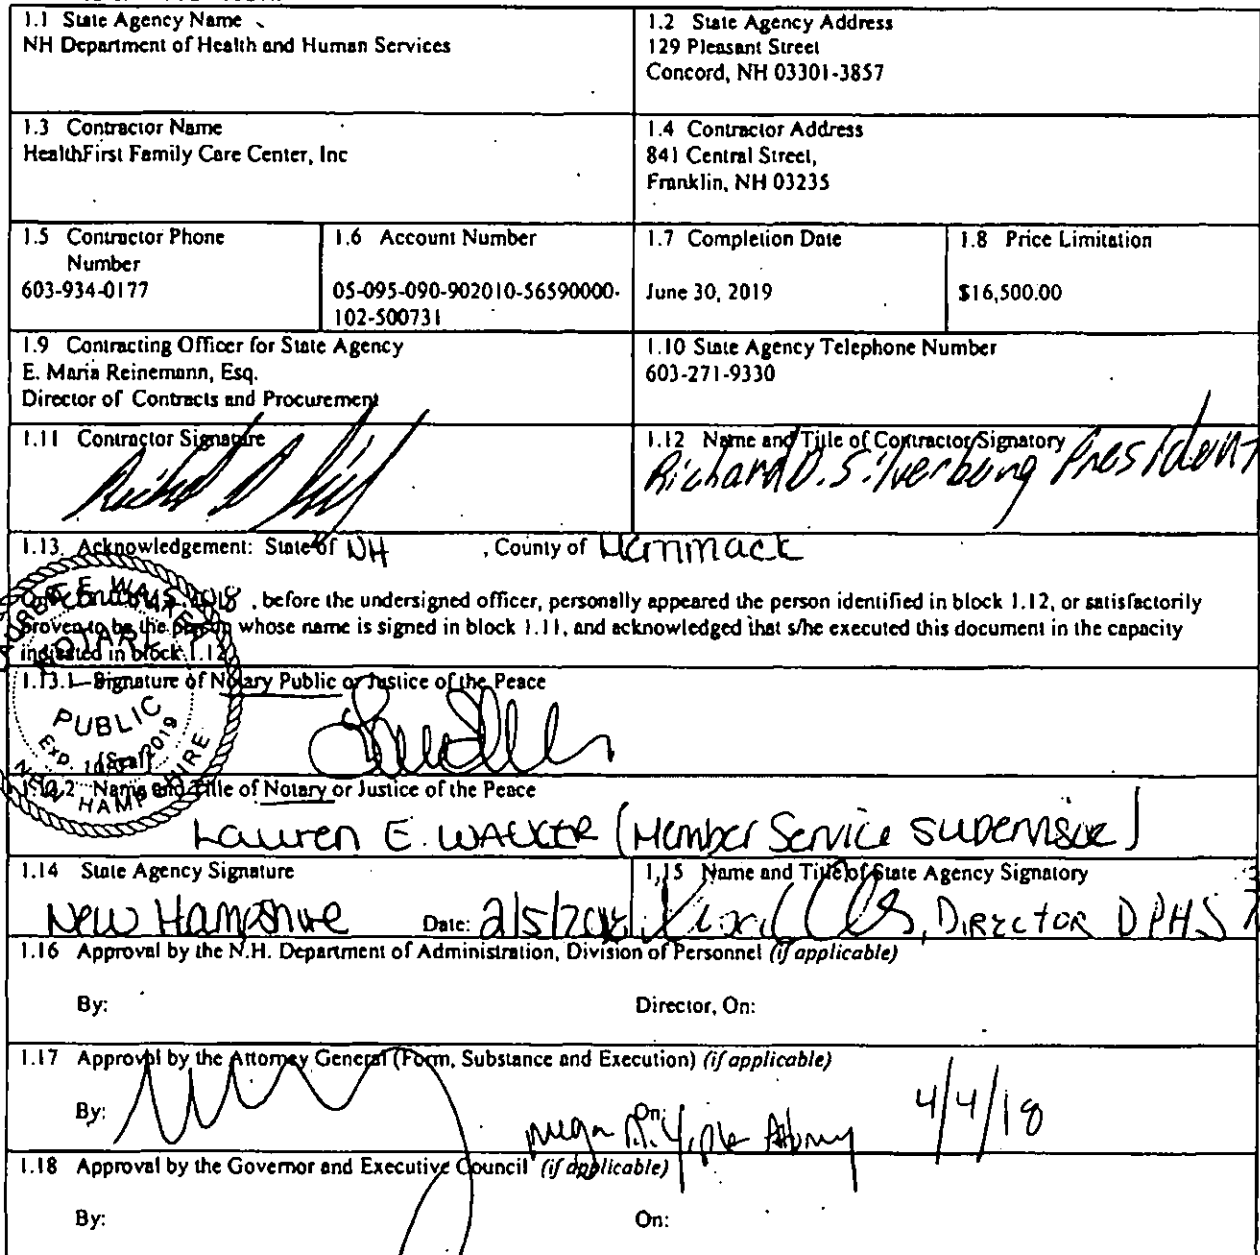 1.1 State Agency Name
NH Department of Health and Human Services
1.2 State Agency Address
129 Pleasant Street
Concord, NH 03301-3857
1.3 Contractor Name
HealthFirst Family Care Center, Inc
1.4 Contractor Address
841 Central Street,
Franklin, NH 03235
1.5 Contractor Phone
Number
603-934-0177
1.6 Account Number
05-095-090-902010-56590000-
102-500731
1.7 Completion Date
June 30, 2019
1.8 Price Limitation
$16,500.00
1.9 Contracting Officer for State Agency
E. Maria Reinemann, Esq.
Director of Contracts and Procurement
1.10 State Agency Telephone Number
603-271-9330
1.11 Contractor Signature
1.12 Name and Title of Contractor Signatory
Richard D. Silverberg President
1.13. Acknowledgement: State of NH , County of Merrimack
, before the undersigned officer, personally appeared the person identified in block 1.12, or satisfactorily
proven to be the person whose name is signed in block 1.11, and acknowledged that s/he executed this document in the capacity
indicated in block 1.12
1.13.1 Signature of Notary Public or Justice of the Peace
NOTARY
PUBLIC
[Seal]
NEW HAMPSHIRE
1.13.2 Name and Title of Notary or Justice of the Peace
Lauren E. WALKER (Member Service supervisor)
1.14 State Agency Signature
New Hampshire Date: 2/5/2018
1.15 Name and Title of State Agency Signatory
DIRECTOR DPHS
1.16 Approval by the N.H. Department of Administration, Division of Personnel (if applicable)
By: Director, On:
1.17 Approval by the Attorney General (Form, Substance and Execution) (if applicable)
By: On: 4/4/18
1.18 Approval by the Governor and Executive Council (if applicable)
By: On: